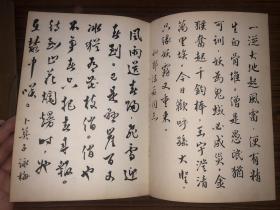 一從大地起風雷便有精
生白骨堆僧是愚氓猶
可訓妖為鬼蜮必成災金
猴奮起千鈞棒玉宇澄清
萬里埃今日歡呼孫大聖
只緣妖霧又重來
和郭沫若同志
風雨送春歸飛雪迎
春到已是懸崖百丈
冰猶有花枝俏俏也
不爭春只把春來報
待到山花爛熳時她
在叢中笑卜算子詠梅